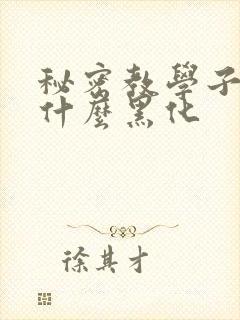 秘密教學子
什麼黑化
徐其才